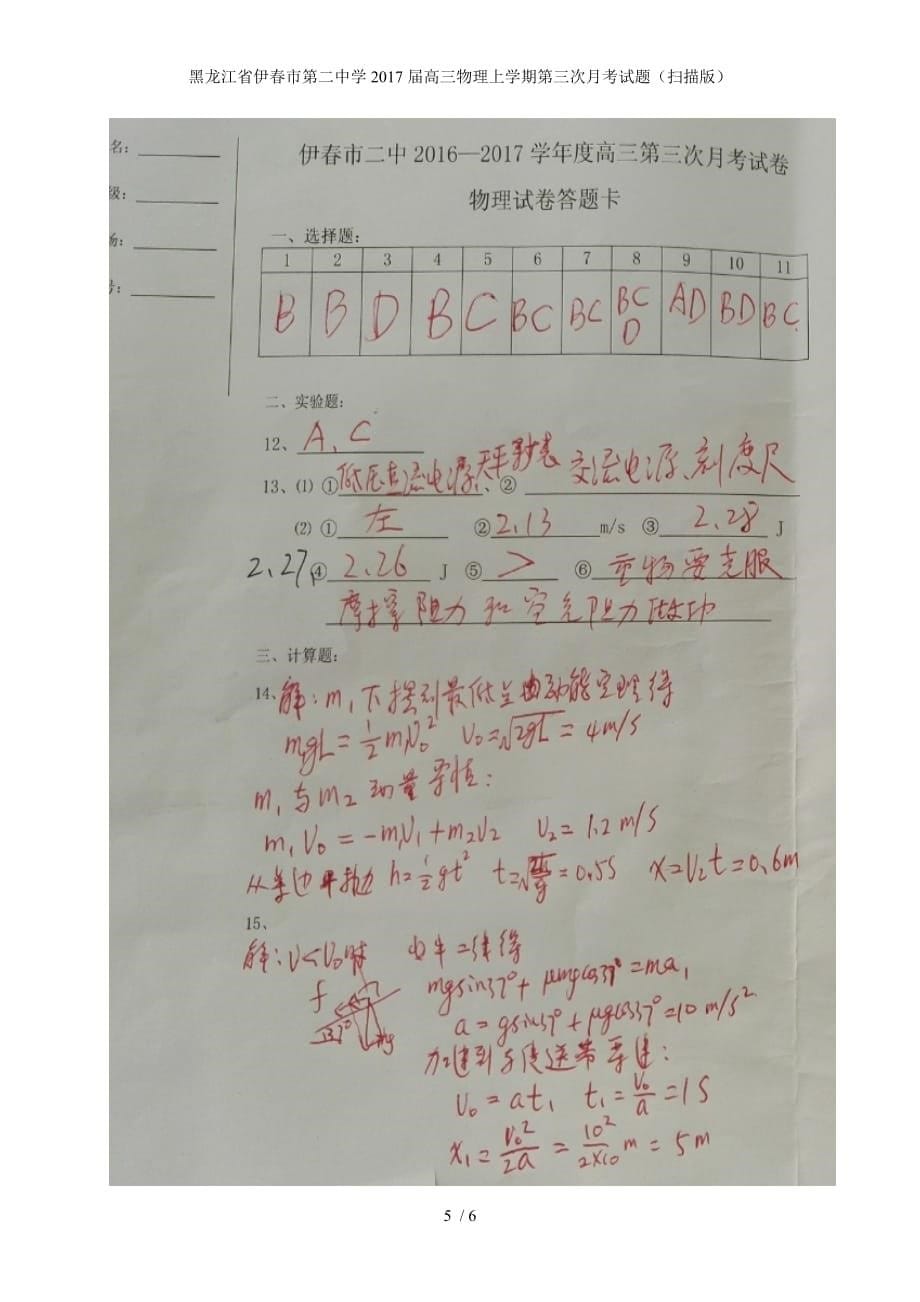 黑龙江省伊春市第二中学 2017 届高三物理上学期第三次月考试题（扫描版）
名：
级：
场：
号：
伊春市二中 2016—2017 学年度高三第三次月考试卷
物理试卷答题卡
一、选择题：
1 2 3 4 5 6 7 8 9 10 11
B B D B C BC BC BCD AD BD BC
二、实验题：
12、A、C
13、⑴ ①低压直流电源、天平、秒表、②交流电源、刻度尺
⑵ ①左 ②2.13 m/s ③2.28 J
2.27 ④2.26 J ⑤> ⑥重物要克服
摩擦阻力和空气阻力做功
三、计算题：
14、解：m₁下摆到最低点由动能定理得
m₁gL=½m₁V₀² V₀=√2gL=4m/s
m₁与m₂动量守恒：
m₁V₀=-m₁V₁+m₂V₂ V₂=1.2m/s
从 边平抛 h=½gt² t=√2h/g=0.5S x=V₂t=0.6m
15、
解：V<V₀时 由牛二律得
f
mgsin37°+μmgcos37°=ma₁
37° mg
a=gsin37°+μgcos37°=10m/s²
加速到与传送带等速：
V₀=at₁ t₁=V₀/a=1S
x₁=V₀²/2a=10²/2×10 m=5m
5 / 6